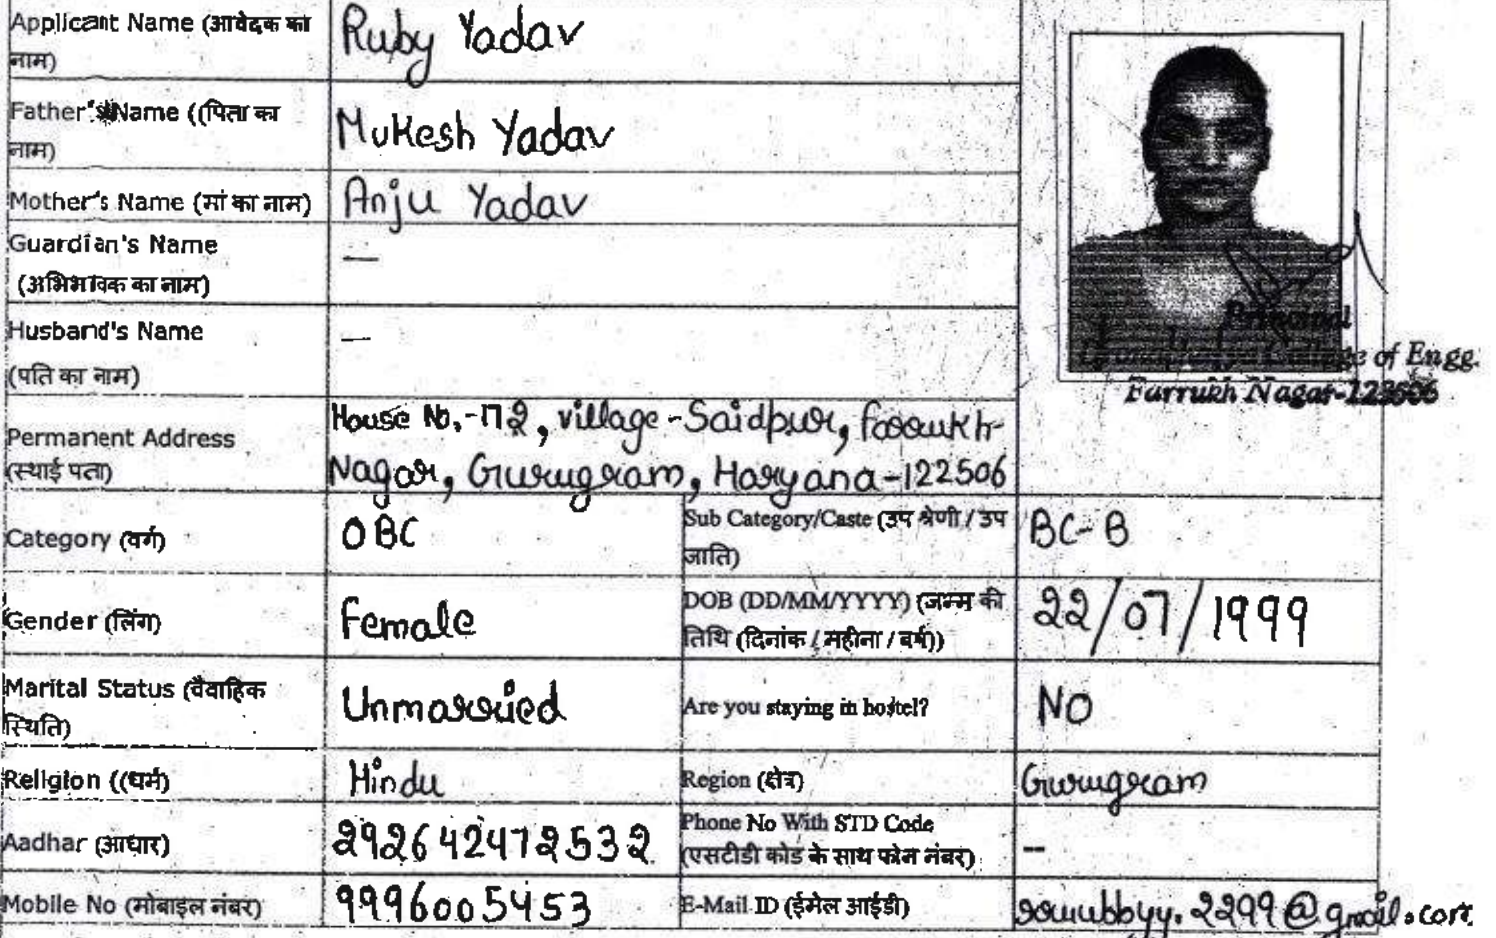 Applicant Name (आवेदक का नाम) Ruby Yadav
Father's Name ((पिता का नाम) Mukesh Yadav
Mother's Name (मां का नाम) Anju Yadav
Guardian's Name (अभिभावक का नाम) —
Husband's Name (पति का नाम) —
Principal
College of Engg.
Farrukh Nagar-
Permanent Address (स्थाई पता) House No.-172, village-Saidpur, farrukh-
Nagar, Gurugram, Haryana-122506
Category (वर्ग) OBC Sub Category/Caste (उप श्रेणी / उप जाति) BC-B
Gender (लिंग) Female DOB (DD/MM/YYYY) (जन्म की तिथि (दिनांक / महीना / वर्ष)) 22/07/1999
Marital Status (वैवाहिक स्थिति) Unmarried Are you staying in hostel? NO
Religion ((धर्म) Hindu Region (क्षेत्र) Gurugram
Aadhar (आधार) 292642472532 Phone No With STD Code (एसटीडी कोड के साथ फोन नंबर) --
Mobile No (मोबाइल नंबर) 9996005453 E-Mail ID (ईमेल आईडी) rrubbyy.2299@gmail.com